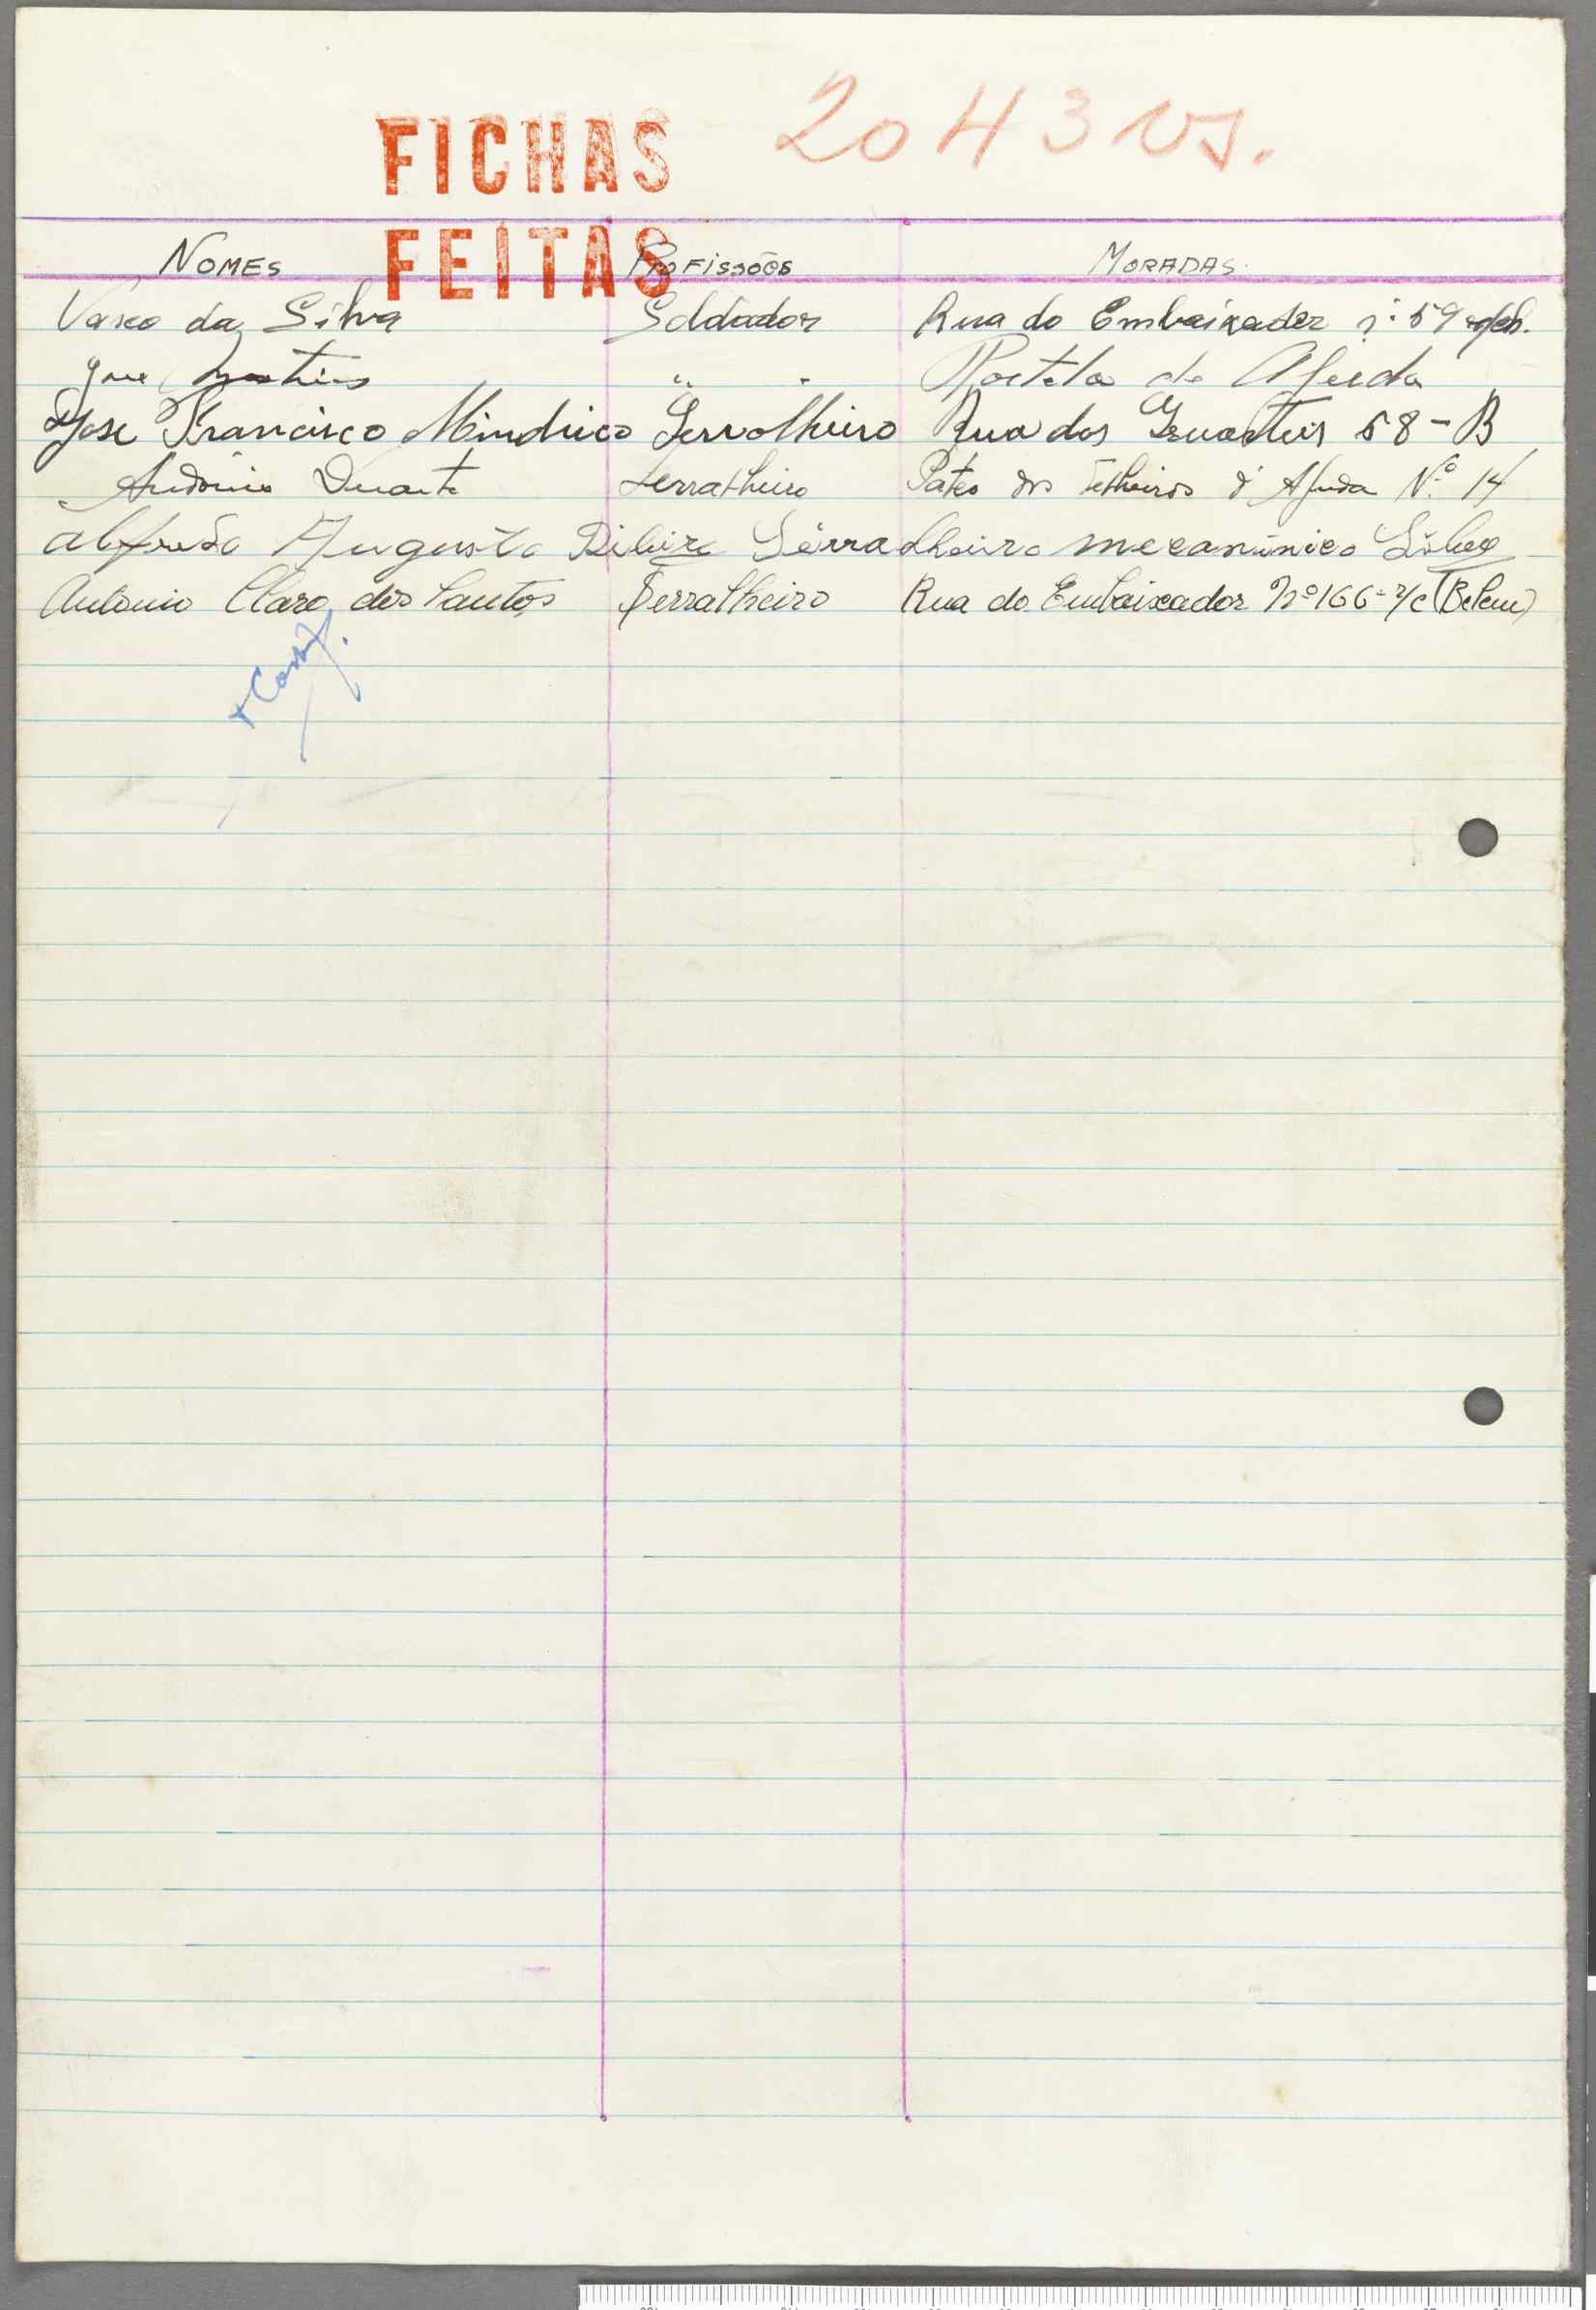 FICHAS 2043 vs.
FEITAS
NOMES PROFISSÕES MORADAS
Vasco da Silva Soldador Rua do Embaixador 59
José Martins " " Portela da Ajuda
José Francisco Mindrico Serralheiro Rua dos Quarteis 58-B
António Duarte Serralheiro Pateo dos Telheiros d'Ajuda Nº 14
Alfredo Augusto Ribeiro Serralheiro mecanínico
Antonio Claro dos Santos Serralheiro Rua do Embaixador Nº 166-r/c (Belem)